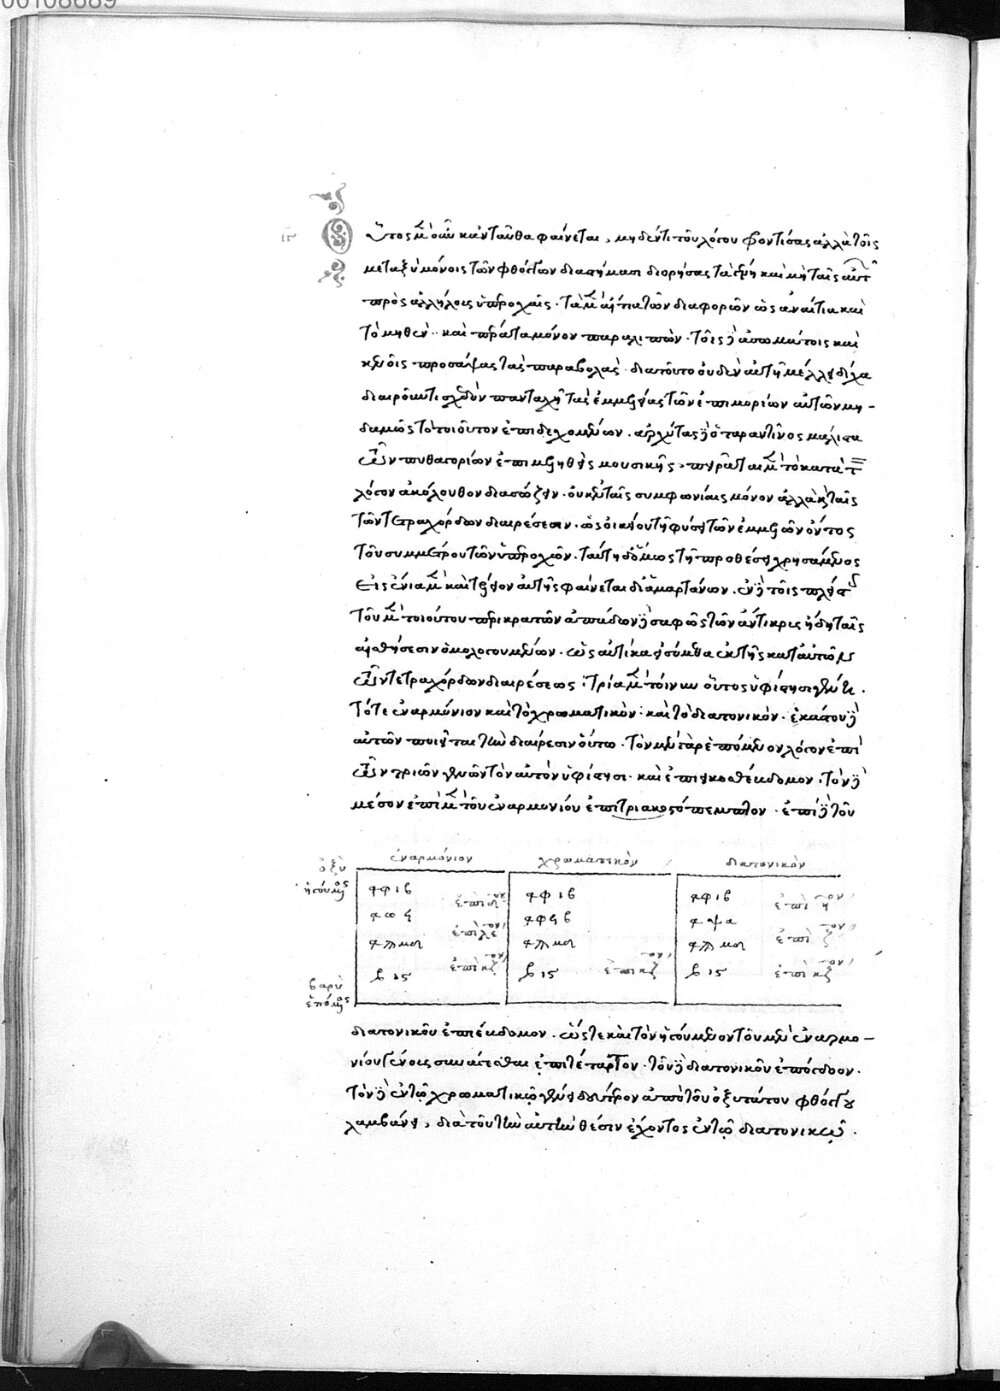 00108689
ιγ
Οὗτος μὲν οὖν κἀνταῦθα φαίνεται, μηδέν τι τοῦ λόγου φροντίσας ἀλλὰ τοῖς
μεταξὺ μόνοις τῶν φθόγγων διαστήμασι διορίσας τὰ γένη καὶ μὴ ταῖς αὐτῶν
πρὸς ἀλλήλους ὑπεροχαῖς. τὰ μὲν αἴτια τῶν διαφορῶν ὡς ἀναίτια καὶ
τὸ μηθὲν καὶ πέρατα μόνον παραλιπών. τοῖς δὲ ἀσωμάτοις καὶ
κενοῖς προσάψας τὰς παραβολάς. διὰ τοῦτο οὐδὲν αὐτῷ μέλλει δίχα
διαιροῦντι σχεδὸν πανταχῇ τὰς ἐμμελείας τῶν ἐπιμορίων αὐτῶν μη-
δαμῶς τὸ τοιοῦτον ἐπιδεχομένων. ἀρχύτας δὲ ὁ ταραντῖνος μάλιστα
τῶν πυθαγορίων ἐπιμεληθεὶς μουσικῆς, πειρᾶται μὲν τὸ κατὰ τὸν
λόγον ἀκόλουθον διασώζειν. οὐκ ἐν ταῖς συμφωνίαις μόνον ἀλλὰ καὶ ταῖς
τῶν τετραχόρδων διαιρέσεσιν. ὡς οἰκείου τῇ φύσει τῶν ἐμμελῶν ὄντος
τοῦ συμμέτρου τῶν ὑπεροχῶν. ταύτῃ δ' ὅμως τῇ προθέσει χρησάμενος
εἰς ἔνια μὲν καὶ τέλεον αὐτῆς φαίνεται διαμαρτάνων. ἐν δὲ τοῖς πλείστοις
τοῦ μὲν τοιούτου περικρατῶν ἀπᾴδων δὲ σαφῶς τῶν ἄντικρις ἤδη ταῖς
αἰσθήσεσιν ὁμολογουμένων. ὡς αὐτίκα εἰσόμεθα ἐκ τῆς κατ' αὐτὸν
τῶν τετραχόρδων διαιρέσεως. τρία μὲν τοίνυν οὗτος ὑφίστησι γένη.
τό τε ἐναρμόνιον καὶ τὸ χρωματικὸν καὶ τὸ διατονικόν. ἑκάστου δὲ
αὐτῶν ποιεῖται τὴν διαίρεσιν οὕτω. τὸν μὲν γὰρ ἑπόμενον λόγον ἐπὶ
τῶν τριῶν γενῶν τὸν αὐτὸν ὑφίστησι. καὶ ἐπιεικοσθέκδομον. τὸν δὲ
μέσον ἐπὶ μὲν τοῦ ἐναρμονίου ἐπιτριακοστόπεμπτον. ἐπὶ δὲ τοῦ
ἐναρμόνιον χρωματικὸν διατονικὸν
ὀξὺ
ἡγούμενος
͵αφιβ ͵αφιβ ͵αφιβ
ἐπὶ δον ἐπὶ ηον
͵αψα
ἐπὶ λεον ἐπὶ ζον
ἐπὶ κζον ἐπὶ κζον ἐπὶ κζον
͵βις ͵βις ͵βις
βαρὺ
ἑπόμενος
διατονικοῦ ἐπιέκδομον. ὥστε καὶ τὸν ἡγούμενον τοῦ μὲν ἐναρμο-
νίου γένους συνάγεσθαι ἐπιτέταρτον. τοῦ δὲ διατονικοῦ ἐπόγδοον.
τὸν δὲ ἐν τῷ χρωματικῷ γένει δεύτερον ἀπὸ τοῦ ὀξυτάτου φθόγγου
λαμβάνει, διὰ τοῦ τὴν αὐτὴν θέσιν ἔχοντος ἐν τῷ διατονικῷ.